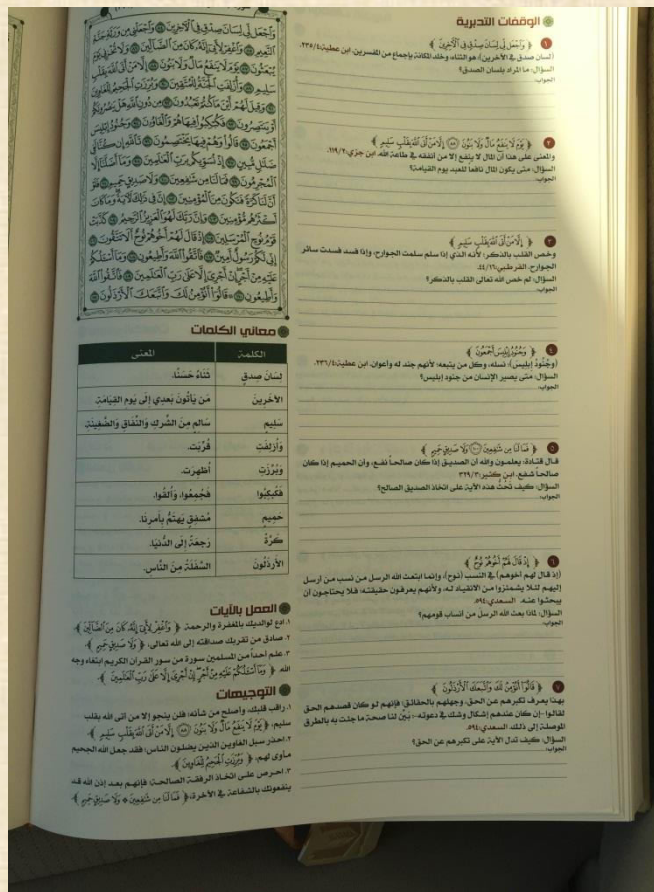 الوقفات التدبرية
١ ﴿ وَاجْعَل لِّي لِسَانَ صِدْقٍ فِي الْآخِرِينَ ﴾
(لسان صدق في الآخرين): هو الثناء، وخلد المكانة بإجماع من المفسرين. ابن عطية: ٢٣٥/٤.
السؤال: ما المراد بلسان الصدق؟
الجواب:
٢ ﴿ يَوْمَ لَا يَنفَعُ مَالٌ وَلَا بَنُونَ ۝ إِلَّا مَنْ أَتَى اللَّهَ بِقَلْبٍ سَلِيمٍ ﴾
والمعنى على هذا أن المال لا ينفع إلا من أنفقه في طاعة الله. ابن جزي: ١١٩/٢.
السؤال: متى يكون المال نافعا للعبد يوم القيامة؟
الجواب:
٣ ﴿ إِلَّا مَنْ أَتَى اللَّهَ بِقَلْبٍ سَلِيمٍ ﴾
وخص القلب بالذكر؛ لأنه الذي إذا سلم سلمت الجوارح، وإذا فسد فسدت سائر
الجوارح. القرطبي: ٤٤/١٦.
السؤال: لم خص الله تعالى القلب بالذكر؟
الجواب:
٤ ﴿ وَجُنُودُ إِبْلِيسَ أَجْمَعُونَ ﴾
(وجُنُودُ إبليس): نسله، وكل من يتبعه؛ لأنهم جند له وأعوان. ابن عطية: ٢٣٦/٤.
السؤال: متى يصير الإنسان من جنود إبليس؟
الجواب:
٥ ﴿ فَمَا لَنَا مِن شَافِعِينَ ۝ وَلَا صَدِيقٍ حَمِيمٍ ﴾
قال قتادة: يعلمون والله أن الصديق إذا كان صالحاً نفع، وأن الحميم إذا كان
صالحاً شفع. ابن كثير: ٣٢٩/٣.
السؤال: كيف تَحُثُّ هذه الآية على اتخاذ الصديق الصالح؟
الجواب:
٦ ﴿ إِذْ قَالَ لَهُمْ أَخُوهُمْ نُوحٌ ﴾
(إذ قال لهم أخوهم) في النسب (نوح)، وإنما ابتعث الله الرسل من نسب من أرسل
إليهم لئلا يشمئزوا من الانقياد له، ولأنهم يعرفون حقيقته؛ فلا يحتاجون أن
يبحثوا عنه. السعدي: ٥٩٤.
السؤال: لماذا بعث الله الرسل من أنساب قومهم؟
الجواب:
٧ ﴿ قَالُوا أَنُؤْمِنُ لَكَ وَاتَّبَعَكَ الْأَرْذَلُونَ ﴾
بهذا يعرف تكبرهم عن الحق، وجهلهم بالحقائق؛ فإنهم لو كان قصدهم الحق
لقالوا -إن كان عندهم إشكال وشك في دعوته-: بَيِّن لنا صحة ما جئت به بالطرق
الموصلة إلى ذلك. السعدي: ٥٩٤.
السؤال: كيف تدل الآية على تكبرهم عن الحق؟
الجواب:
وَاجْعَل لِّي لِسَانَ صِدْقٍ فِي الْآخِرِينَ ۝ وَاجْعَلْنِي مِن وَرَثَةِ جَنَّةِ
النَّعِيمِ ۝ وَاغْفِرْ لِأَبِي إِنَّهُ كَانَ مِنَ الضَّالِّينَ ۝ وَلَا تُخْزِنِي يَوْمَ
يُبْعَثُونَ ۝ يَوْمَ لَا يَنفَعُ مَالٌ وَلَا بَنُونَ ۝ إِلَّا مَنْ أَتَى اللَّهَ بِقَلْبٍ
سَلِيمٍ ۝ وَأُزْلِفَتِ الْجَنَّةُ لِلْمُتَّقِينَ ۝ وَبُرِّزَتِ الْجَحِيمُ لِلْغَاوِينَ
۝ وَقِيلَ لَهُمْ أَيْنَ مَا كُنتُمْ تَعْبُدُونَ ۝ مِن دُونِ اللَّهِ هَلْ يَنصُرُونَكُمْ
أَوْ يَنتَصِرُونَ ۝ فَكُبْكِبُوا فِيهَا هُمْ وَالْغَاوُونَ ۝ وَجُنُودُ إِبْلِيسَ
أَجْمَعُونَ ۝ قَالُوا وَهُمْ فِيهَا يَخْتَصِمُونَ ۝ تَاللَّهِ إِن كُنَّا لَفِي
ضَلَالٍ مُّبِينٍ ۝ إِذْ نُسَوِّيكُم بِرَبِّ الْعَالَمِينَ ۝ وَمَا أَضَلَّنَا إِلَّا
الْمُجْرِمُونَ ۝ فَمَا لَنَا مِن شَافِعِينَ ۝ وَلَا صَدِيقٍ حَمِيمٍ ۝ فَلَوْ
أَنَّ لَنَا كَرَّةً فَنَكُونَ مِنَ الْمُؤْمِنِينَ ۝ إِنَّ فِي ذَٰلِكَ لَآيَةً وَمَا كَانَ
أَكْثَرُهُم مُّؤْمِنِينَ ۝ وَإِنَّ رَبَّكَ لَهُوَ الْعَزِيزُ الرَّحِيمُ ۝ كَذَّبَتْ
قَوْمُ نُوحٍ الْمُرْسَلِينَ ۝ إِذْ قَالَ لَهُمْ أَخُوهُمْ نُوحٌ أَلَا تَتَّقُونَ ۝
إِنِّي لَكُمْ رَسُولٌ أَمِينٌ ۝ فَاتَّقُوا اللَّهَ وَأَطِيعُونِ ۝ وَمَا أَسْأَلُكُمْ
عَلَيْهِ مِنْ أَجْرٍ إِنْ أَجْرِيَ إِلَّا عَلَىٰ رَبِّ الْعَالَمِينَ ۝ فَاتَّقُوا اللَّهَ
وَأَطِيعُونِ ۝ قَالُوا أَنُؤْمِنُ لَكَ وَاتَّبَعَكَ الْأَرْذَلُونَ ۝
معاني الكلمات
الكلمة المعنى
لِسَانَ صِدْقٍ ثَنَاءً حَسَنًا.
الآخِرِينَ مَن يَأتُونَ بَعدِي إلَى يَومِ القِيَامَةِ.
سَلِيمٍ سَالِمٍ مِنَ الشِّركِ وَالنِّفَاقِ وَالضَّغِينَةِ.
وَأُزلِفَتِ قُرِّبَت.
وَبُرِّزَتِ أُظهِرَت.
فَكُبكِبُوا فَجُمِعُوا، وَأُلقُوا.
حَمِيمٍ مُشفِقٍ يَهتَمُّ بِأَمرِنَا.
كَرَّةً رَجعَةً إلَى الدُّنيَا.
الأَرذَلُونَ السَّفَلَةُ مِنَ النَّاسِ.
العمل بالآيات
١. ادع لوالديك بالمغفرة والرحمة ﴿ وَاغْفِرْ لِأَبِي إِنَّهُ كَانَ مِنَ الضَّالِّينَ ﴾.
٢. صادق من تقربك صداقته إلى الله تعالى، ﴿ وَلَا صَدِيقٍ حَمِيمٍ ﴾.
٣. علم أحداً من المسلمين سورة من سور القرآن الكريم ابتغاء وجه
الله، ﴿ وَمَا أَسْأَلُكُمْ عَلَيْهِ مِنْ أَجْرٍ إِنْ أَجْرِيَ إِلَّا عَلَىٰ رَبِّ الْعَالَمِينَ ﴾.
التوجيهات
١. راقب قلبك، وأصلح من شأنه؛ فلن ينجو إلا من أتى الله بقلب
سليم، ﴿ يَوْمَ لَا يَنفَعُ مَالٌ وَلَا بَنُونَ ۝ إِلَّا مَنْ أَتَى اللَّهَ بِقَلْبٍ سَلِيمٍ ﴾.
٢. احذر سبل الغاوين الذين يضلون الناس؛ فقد جعل الله الجحيم
مأوى لهم، ﴿ وَبُرِّزَتِ الْجَحِيمُ لِلْغَاوِينَ ﴾.
٣. احرص على اتخاذ الرفقة الصالحة؛ فإنهم بعد إذن الله قد
ينفعونك بالشفاعة في الآخرة، ﴿ فَمَا لَنَا مِن شَافِعِينَ ۝ وَلَا صَدِيقٍ حَمِيمٍ ﴾.